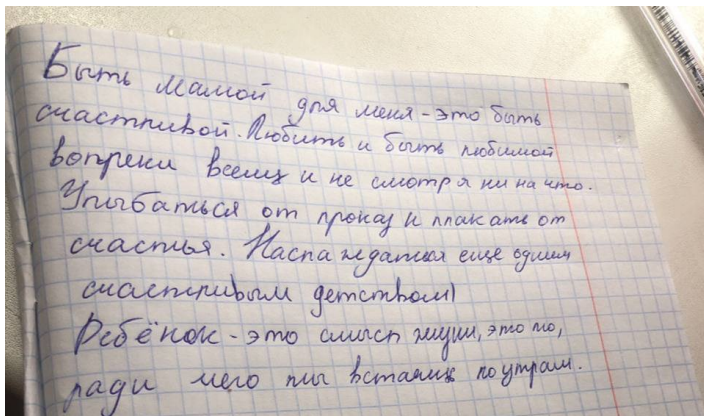 Быть мамой для меня - это быть
счастливой. Любить и быть любимой
вопреки всему и не смотря ни на что.
Улыбаться от проказ и плакать от
счастья. Наслаждаться еще одним
счастливым детством)
Ребёнок - это смысл жизни, это то,
ради чего ты встаёшь по утрам.